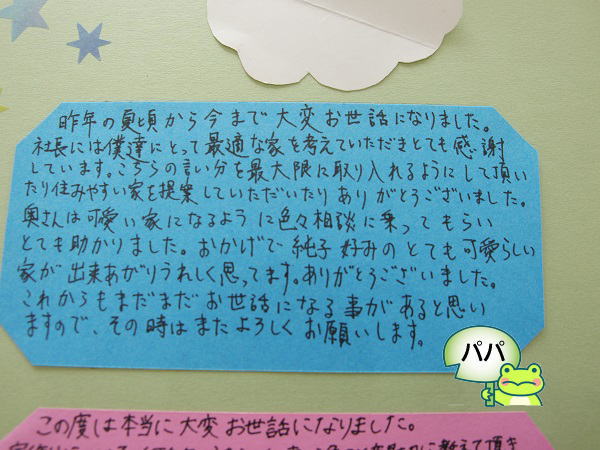 昨年の夏頃から今まで大変お世話になりました。
社長には僕達にとって最適な家を考えていただきとても感謝
しています。こちらの言い分を最大限に取り入れるようにして頂い
たり住みやすい家を提案していただいたりありがとうございました。
奥さんは可愛い家になるように色々相談に乗ってもらい
とても助かりました。おかげで純子好みのとても可愛らしい
家が出来あがりうれしく思ってます。ありがとうございました。
これからもまだまだお世話になる事があると思い
ますので、その時はまたよろしくお願いします。
パパ
この度は本当に大変お世話になりました。
教えて頂き